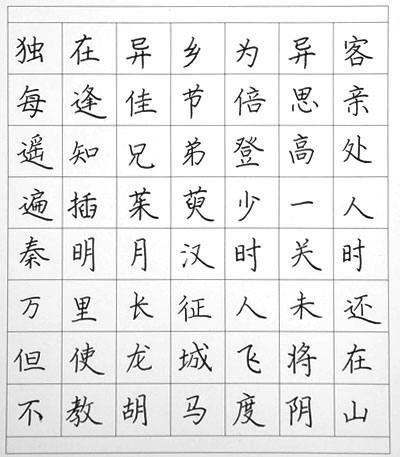 独在异乡为异客
每逢佳节倍思亲
遥知兄弟登高处
遍插茱萸少一人
秦明月汉时关时
万里长征人未还
但使龙城飞将在
不教胡马度阴山